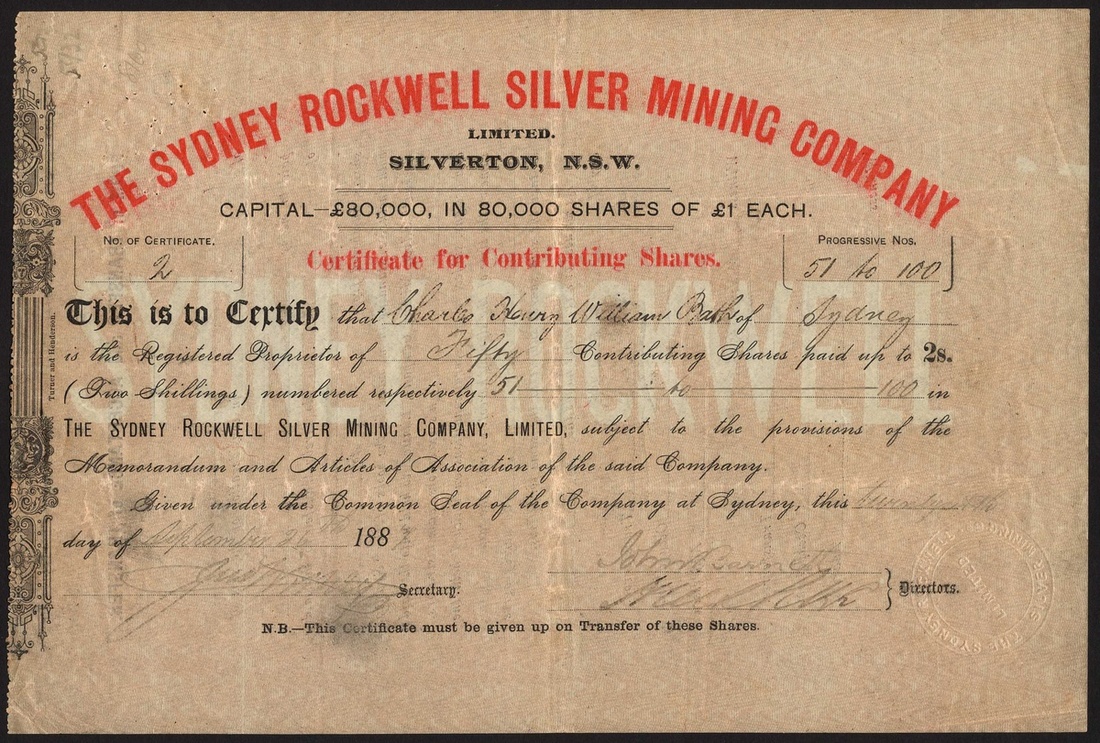 THE SYDNEY ROCKWELL SILVER MINING COMPANY
LIMITED.
SILVERTON, N.S.W.
CAPITAL—£80,000, IN 80,000 SHARES OF £1 EACH.
No. of Certificate.
2
Certificate for Contributing Shares.
Progressive Nos.
51 to 100
This is to Certify that Charles Henry William of Sydney
is the Registered Proprietor of Fifty Contributing Shares paid up to 2s.
(Two Shillings) numbered respectively 51 to 100 in
THE SYDNEY ROCKWELL SILVER MINING COMPANY, LIMITED, subject to the provisions of the
Memorandum and Articles of Association of the said Company.
Given under the Common Seal of the Company at Sydney, this
day of September 188
Secretary.
Directors.
N.B.—This Certificate must be given up on Transfer of these Shares.
Turner and Henderson.
SYDNEY ROCKWELL